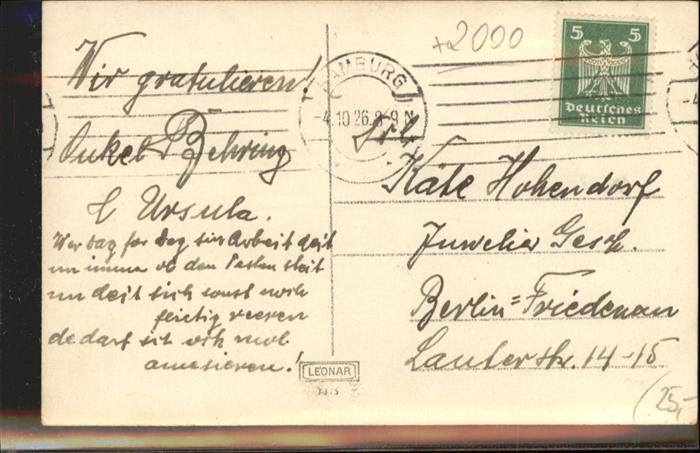 +2000
Wir gratulieren!
Onkel Behring
& Ursula.
Wer Dag for Dag sin Arbeit deit
un imma ob den Posten steit
un deit sich sonst noch
fleitig reeren
de darf sik ock mol
amesieren!
HAMBURG
-4.10.26.8-9 N
5 5
Deutsches
Reich
Frl.
Käte Hohendorf
Juwelier Gesch.
Berlin=Friedenau
Lauter str. 14-15
LEONAR
25,-